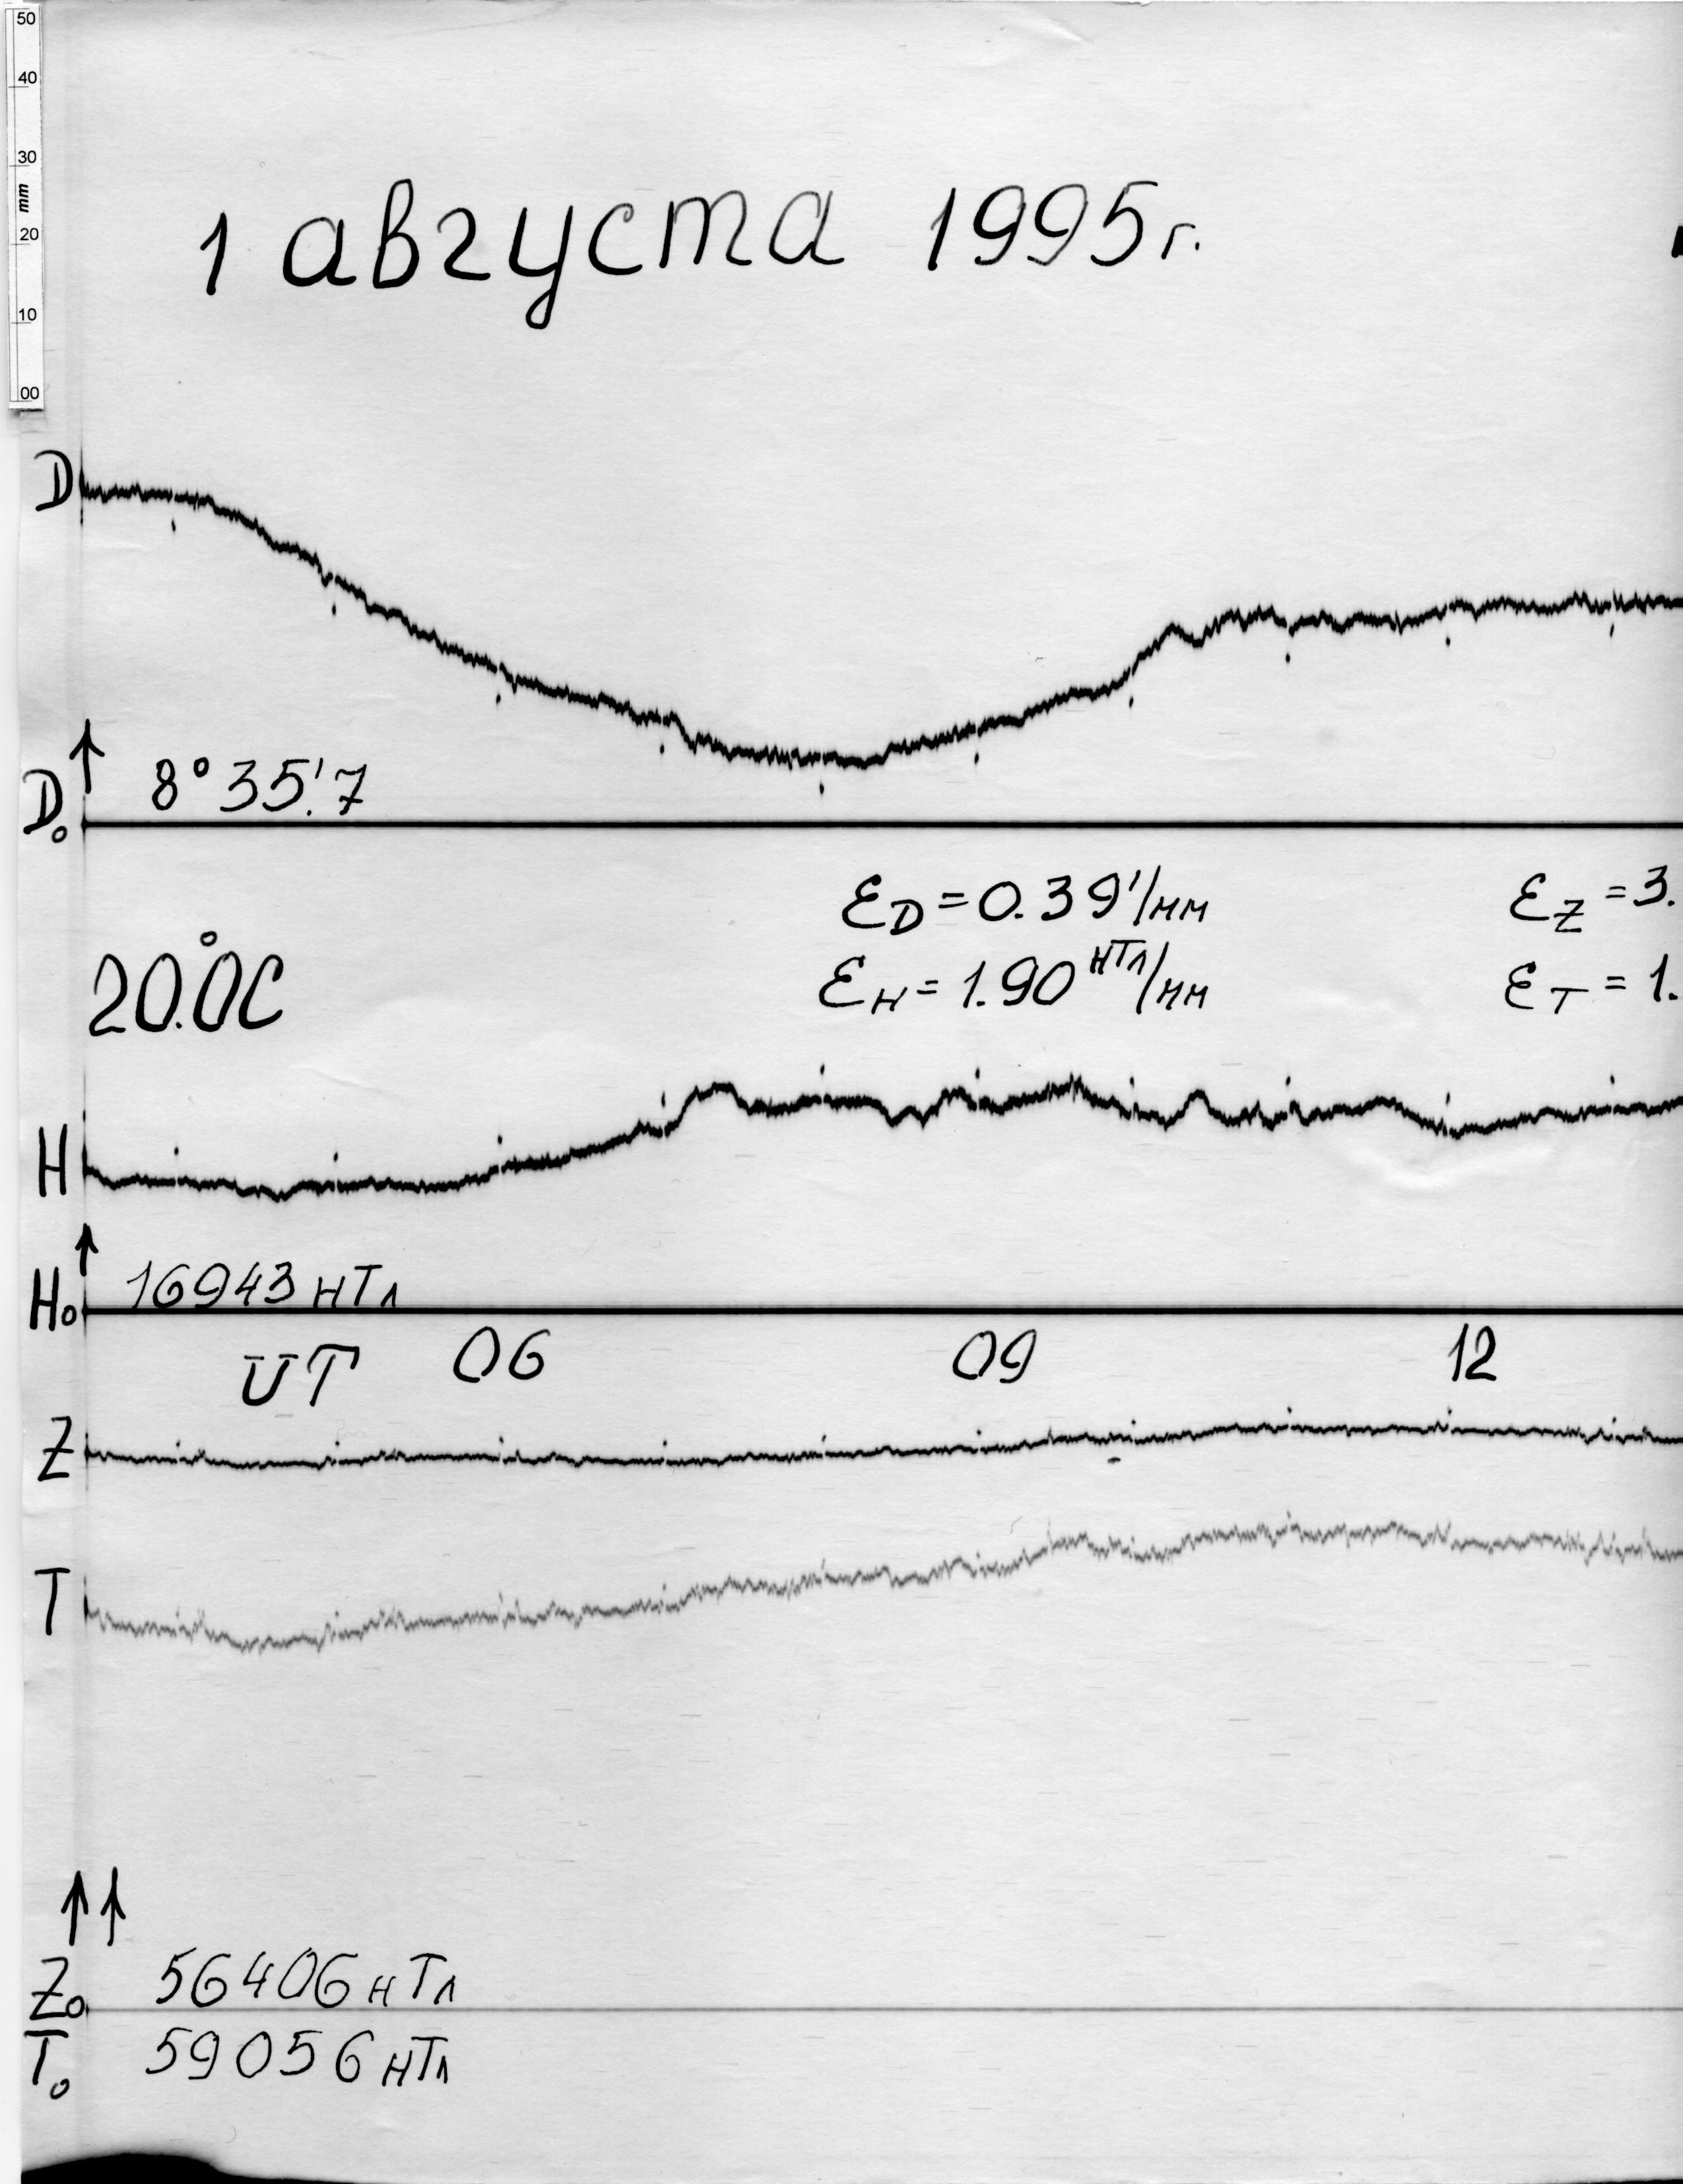 50
40
30
mm
20
10
00
1 августа 1995г.
D
8° 35.'7
D₀
Ɛ_D = 0.39'/мм
Ɛ_Z = 3.
20.°0C
Ɛ_H = 1.90 нТл/мм
Ɛ_T = 1.
H
16943 нТл
H₀
UT 06 09 12
Z
T
Z₀ 56406 нТл
T₀ 59056 нТл